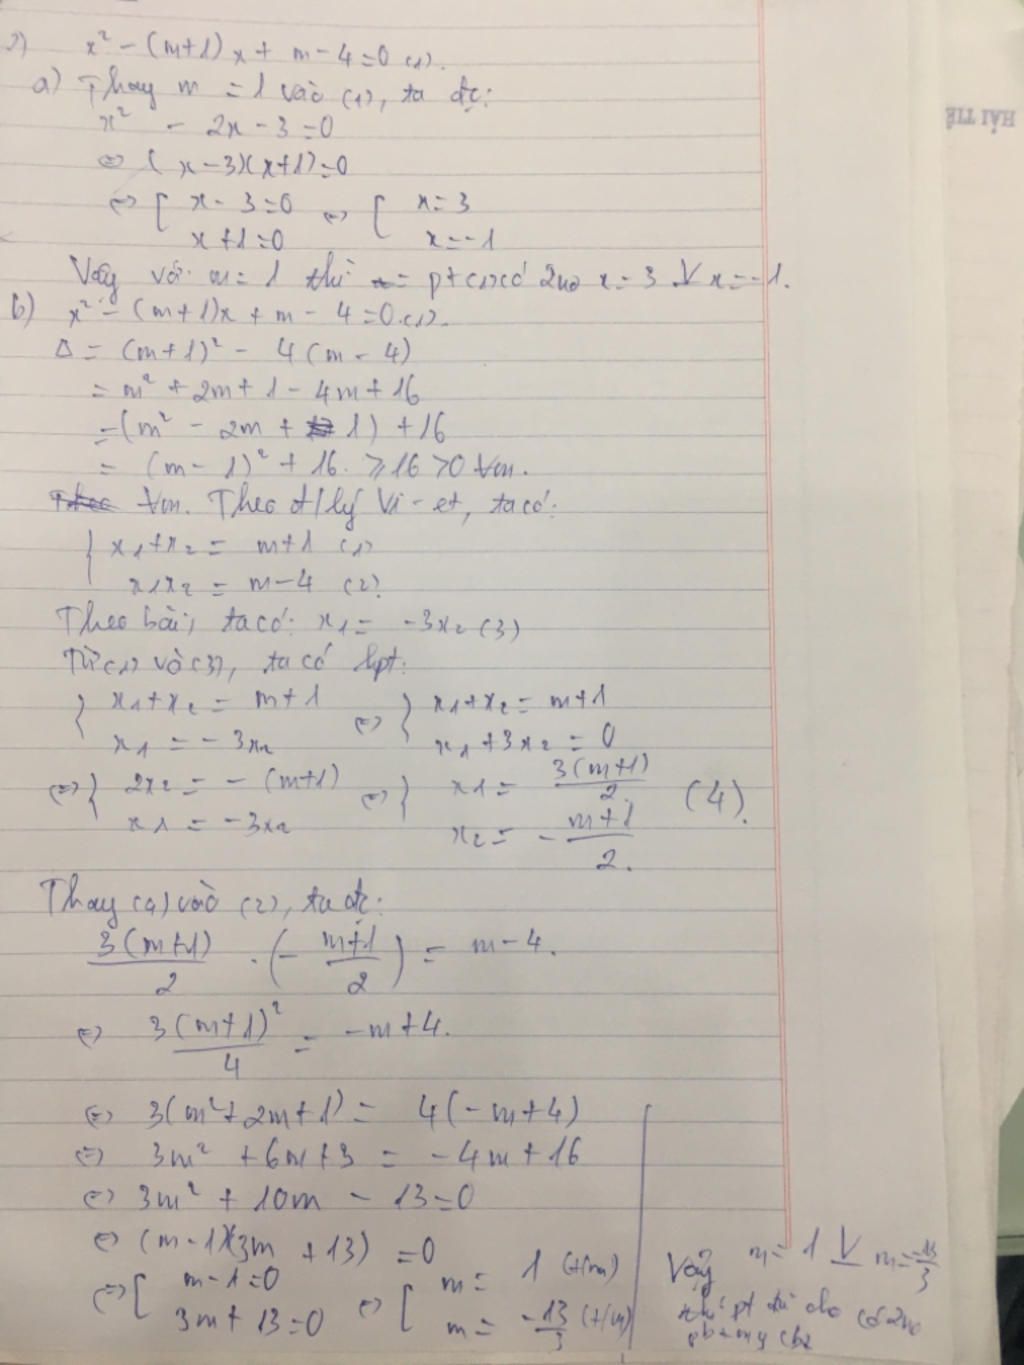 2) x² - (m+1)x + m - 4 = 0 (1).
a) Thay m = 1 vào (1), ta đc:
x² - 2x - 3 = 0
⇔ (x - 3)(x + 1) = 0
⇔ [ x - 3 = 0 ⇔ [ x = 3
x + 1 = 0 x = -1
Vậy với m = 1 thì pt (1) có 2 no x = 3 V x = -1.
b) x² - (m+1)x + m - 4 = 0 (1).
Δ = (m+1)² - 4(m - 4)
= m² + 2m + 1 - 4m + 16
= (m² - 2m + 1) + 16
= (m - 1)² + 16 ≥ 16 > 0 ∀m.
∀m. Theo đ/lý Vi-et, ta có:
{ x₁ + x₂ = m+1 (1)
x₁x₂ = m - 4 (2)
Theo bài, ta có: x₁ = -3x₂ (3)
Từ (1) và (3), ta có hpt:
{ x₁ + x₂ = m+1 ⇔ { x₁ + x₂ = m+1
x₁ = -3x₂ x₁ + 3x₂ = 0
⇔ { 2x₂ = -(m+1) ⇔ { x₁ = 3(m+1)/2 (4).
x₁ = -3x₂ x₂ = - (m+1)/2.
Thay (4) vào (2), ta đc:
3(m+1)/2 . (- (m+1)/2) = m - 4.
⇔ 3(m+1)²/4 = -m + 4.
⇔ 3(m² + 2m + 1) = 4(-m + 4)
⇔ 3m² + 6m + 3 = -4m + 16
⇔ 3m² + 10m - 13 = 0
⇔ (m - 1)(3m + 13) = 0
⇔ [ m - 1 = 0 ⇔ [ m = 1 (t/m)
3m + 13 = 0 m = -13/3 (t/m)
Vậy m = 1 V m = -13/3
thì pt đã cho có 2 no
pb t/m y cbt
HẢI TIẾ